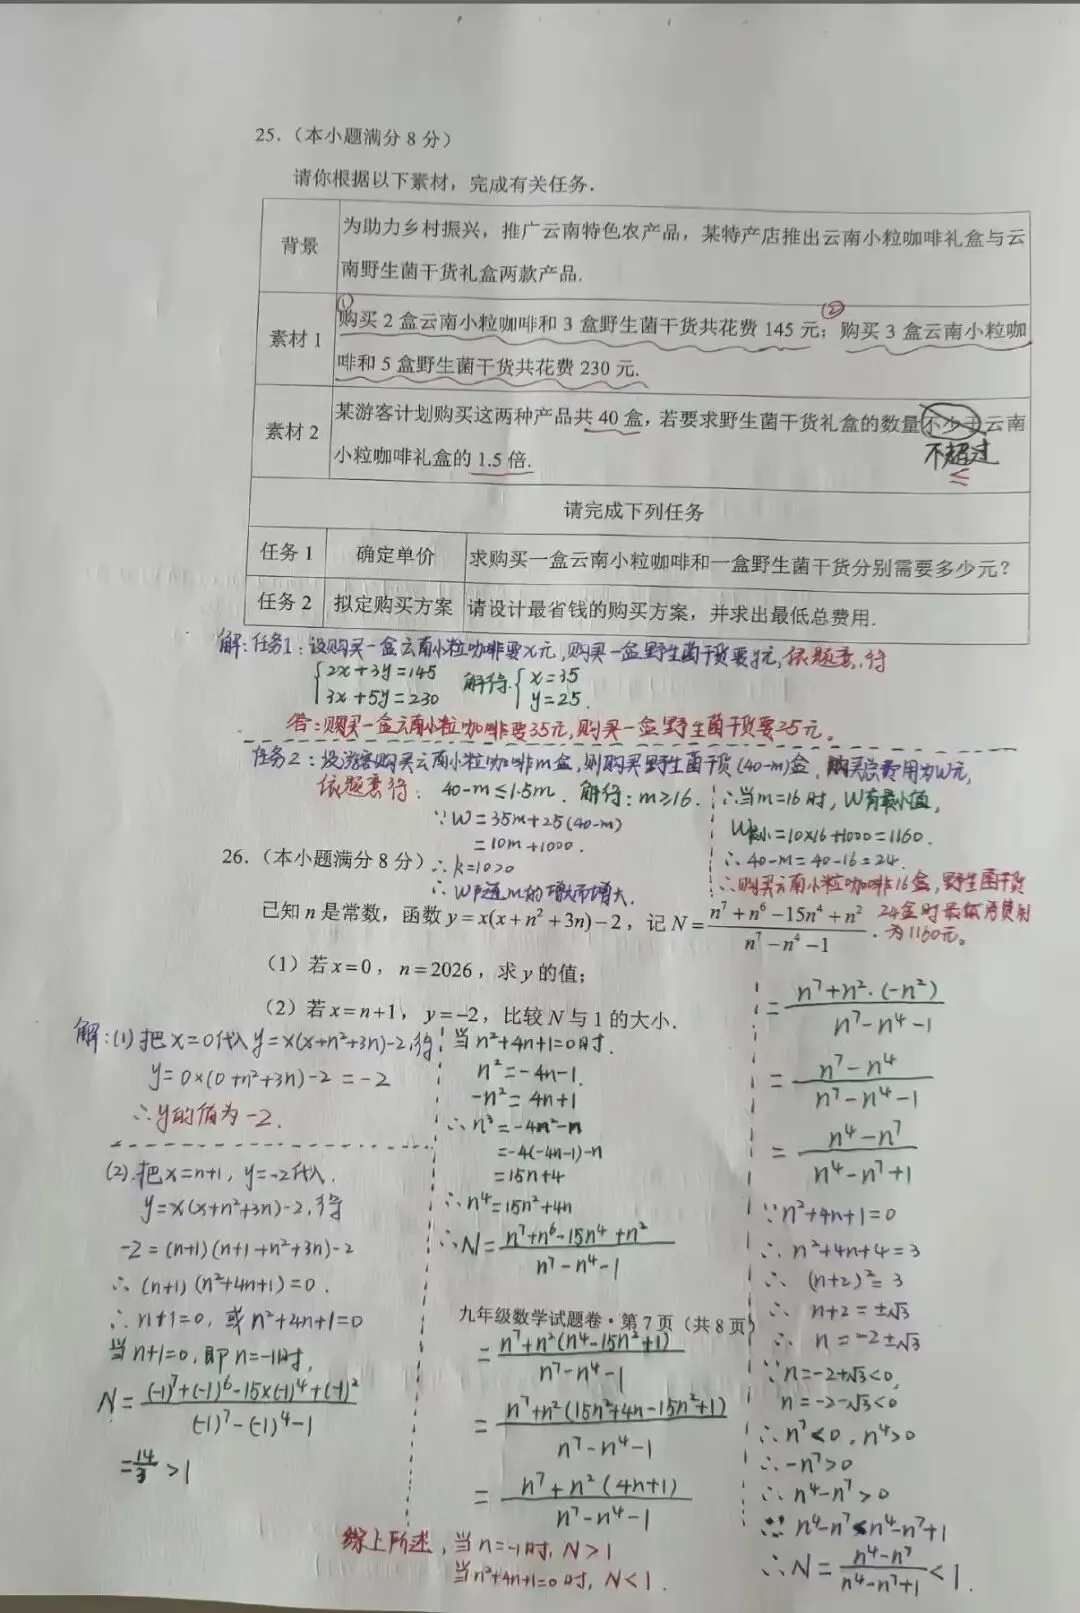 25.（本小题满分 8 分）
请你根据以下素材，完成有关任务.
背景
为助力乡村振兴，推广云南特色农产品，某特产店推出云南小粒咖啡礼盒与云
南野生菌干货礼盒两款产品.
素材 1
① ②
购买 2 盒云南小粒咖啡和 3 盒野生菌干货共花费 145 元；购买 3 盒云南小粒咖
啡和 5 盒野生菌干货共花费 230 元.
素材 2
某游客计划购买这两种产品共 40 盒，若要求野生菌干货礼盒的数量不少于云南
不超过
≤
小粒咖啡礼盒的 1.5 倍.
请完成下列任务
任务 1 确定单价 求购买一盒云南小粒咖啡和一盒野生菌干货分别需要多少元？
任务 2 拟定购买方案 请设计最省钱的购买方案，并求出最低总费用.
解：任务1：设购买一盒云南小粒咖啡要x元，购买一盒野生菌干货要y元，依题意，得
{2x+3y=145 解得{x=35
3x+5y=230 y=25.
答：购买一盒云南小粒咖啡要35元，购买一盒野生菌干货要25元。
任务2：设游客购买云南小粒咖啡m盒，则购买野生菌干货(40-m)盒，购买总费用为W元，
依题意得：40-m≤1.5m. 解得：m≥16.
∵W=35m+25(40-m)
=10m+1000.
∴k=10>0
∴W随m的增大而增大.
∴当m=16时，W有最小值，
W最小=10×16+1000=1160.
∴40-m=40-16=24.
∴购买云南小粒咖啡16盒，野生菌干货
24盒时最低费用
为1160元。
26.（本小题满分 8 分）
已知 n 是常数，函数 y=x(x+n²+3n)-2，记 N=(n⁷+n⁶-15n⁴+n²)/(n⁷-n⁴-1).
（1）若 x=0，n=2026，求 y 的值；
（2）若 x=n+1，y=-2，比较 N 与 1 的大小.
解：(1)把x=0代入y=x(x+n²+3n)-2,得
y=0×(0+n²+3n)-2=-2
∴y的值为-2.
(2).把x=n+1，y=-2代入
y=x(x+n²+3n)-2,得
-2=(n+1)(n+1+n²+3n)-2
∴(n+1)(n²+4n+1)=0.
∴n+1=0，或n²+4n+1=0
当n+1=0，即n=-1时，
N=((-1)⁷+(-1)⁶-15×(-1)⁴+(-1)²)/((-1)⁷-(-1)⁴-1)
=14/3>1
当n²+4n+1=0时.
n²=-4n-1.
-n²=4n+1
∴n³=-4n²-n
=-4(-4n-1)-n
=15n+4
∴n⁴=15n²+4n
∴N=(n⁷+n⁶-15n⁴+n²)/(n⁷-n⁴-1)
九年级数学试题卷·第 7 页（共 8 页）
=(n⁷+n²(n⁴-15n²+1))/(n⁷-n⁴-1)
=(n⁷+n²(15n²+4n-15n²+1))/(n⁷-n⁴-1)
=(n⁷+n²(4n+1))/(n⁷-n⁴-1)
=(n⁷+n²·(-n²))/(n⁷-n⁴-1)
=(n⁷-n⁴)/(n⁷-n⁴-1)
=(n⁴-n⁷)/(n⁴-n⁷+1)
∵n²+4n+1=0
∴n²+4n+4=3
∴(n+2)²=3
∴n+2=±√3
∴n=-2±√3
∵n=-2+√3<0,
n=-2-√3<0
∴n⁷<0，n⁴>0
∴-n⁷>0
∴n⁴-n⁷>0
∵n⁴-n⁷<n⁴-n⁷+1
∴N=(n⁴-n⁷)/(n⁴-n⁷+1)<1.
综上所述，当n=-1时，N>1
当n²+4n+1=0时，N<1.